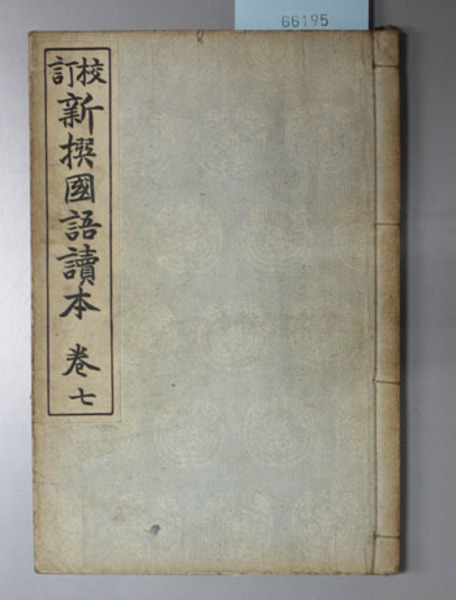 66195
校訂
新撰國語讀本 卷七